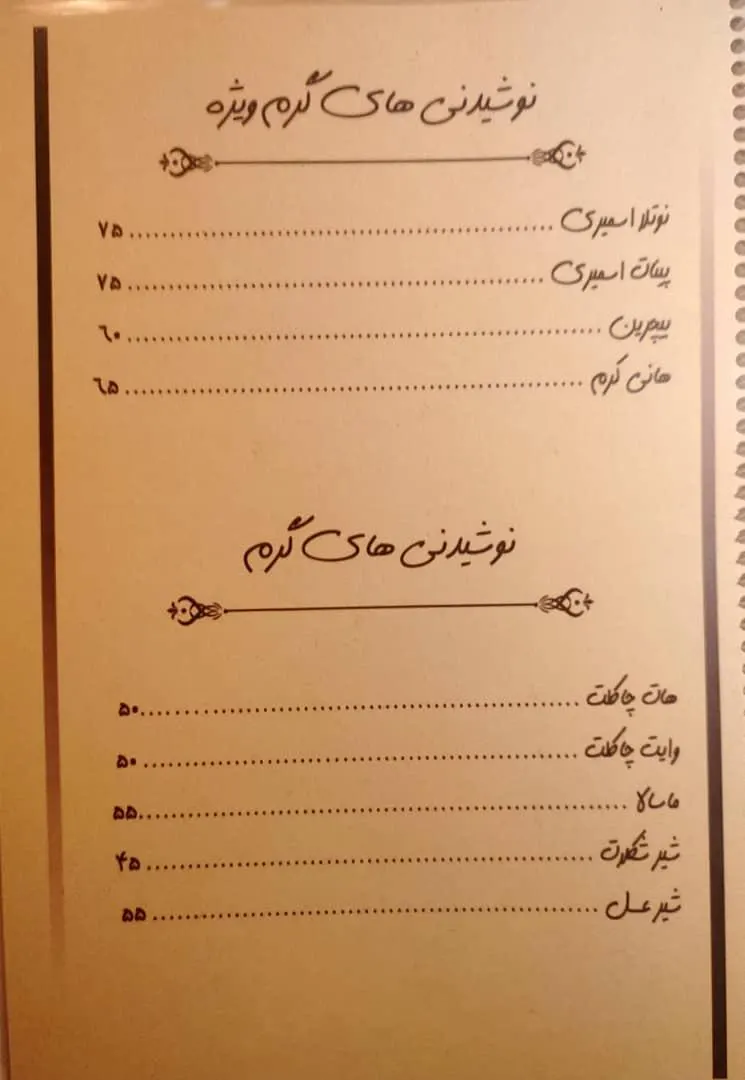 نوشیدنی های گرم ویژه
نوتلا اسپری ............................................................ ۷۵
پینات اسپری ............................................................ ۷۵
............................................................ ۶۰
هانی گرم ............................................................ ۶۵
نوشیدنی های گرم
هات چاکلت ............................................................ ۵۰
وایت چاکلت ............................................................ ۵۰
ماسالا ............................................................ ۵۵
شیر شکلات ............................................................ ۴۵
شیر عسل ............................................................ ۵۵